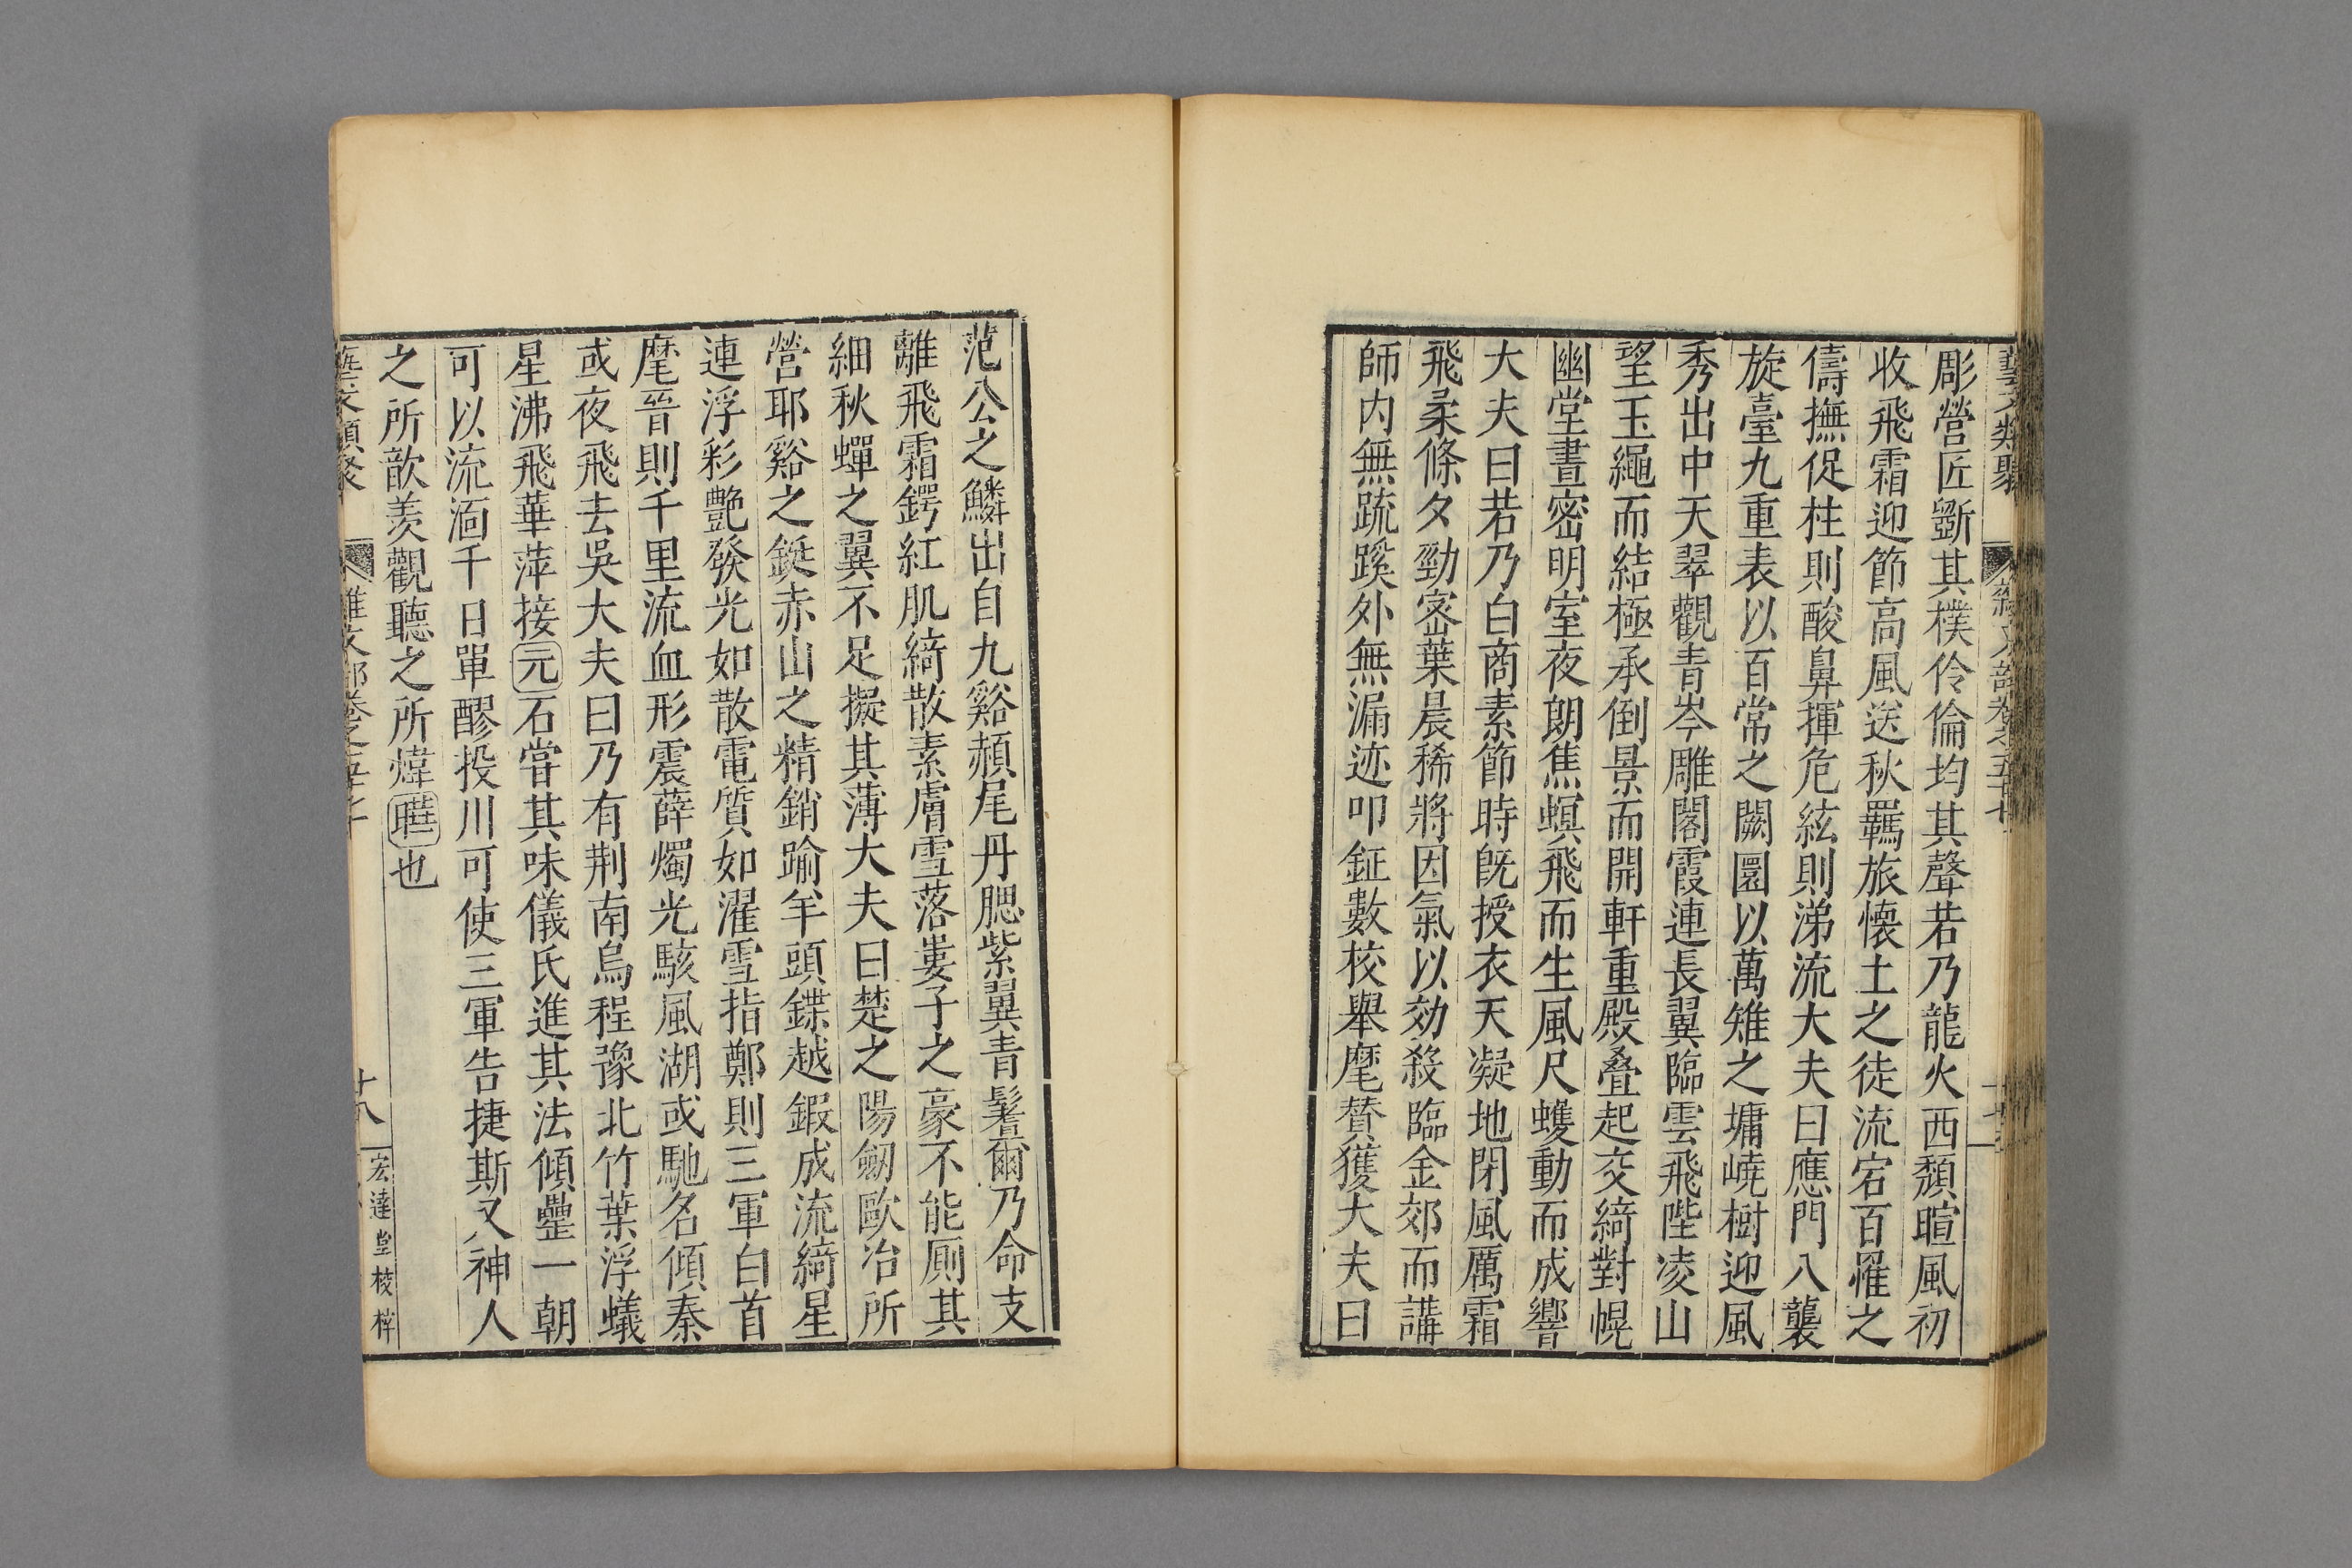 藝文類聚 雜文部卷之五十七
彫營匠斵其樸伶倫均其聲若乃龍火西頹暄風初
收飛霜迎節高風送秋羈旅懷土之徒流宕百罹之
儔撫促柱則酸鼻揮危絃則涕流大夫曰應門八襲
旋臺九重表以百常之闕圜以萬雉之墉嶢樹迎風
秀出中天翠觀青岑雕閣霞連長翼臨雲飛陛凌山
望玉繩而結極承倒景而開軒重殿叠起交綺對幌
幽堂晝密明室夜朗焦螟飛而生風尺蠖動而成響
大夫曰若乃白商素節時旣授衣天凝地閉風厲霜
飛柔條夕勁密葉晨稀將因氣以効殺臨金郊而講
師内無疏蹊外無漏迹叩鉦數校舉麾贊獲大夫曰
范公之鱗出自九谿頳尾丹腮紫翼青鬐爾乃命支
離飛霜鍔紅肌綺散素膚雪落婁子之豪不能厠其
細秋蟬之翼不足擬其薄大夫曰楚之陽劒歐冶所
營耶谿之鋌赤山之精銷踰羊頭鍱越鍜成流綺星
連浮彩艷發光如散電質如濯雪指鄭則三軍白首
麾晉則千里流血形震薛燭光駭風湖或馳名傾秦
或夜飛去吳大夫曰乃有荆南烏程豫北竹葉浮蟻
星沸飛華萍接元石嘗其味儀氏進其法傾罍一朝
可以流湎千日單醪投川可使三軍告捷斯又神人
之所歆羨觀聽之所煒曄也
藝文類聚 雜文部卷之五十七 十八 宏達堂校梓